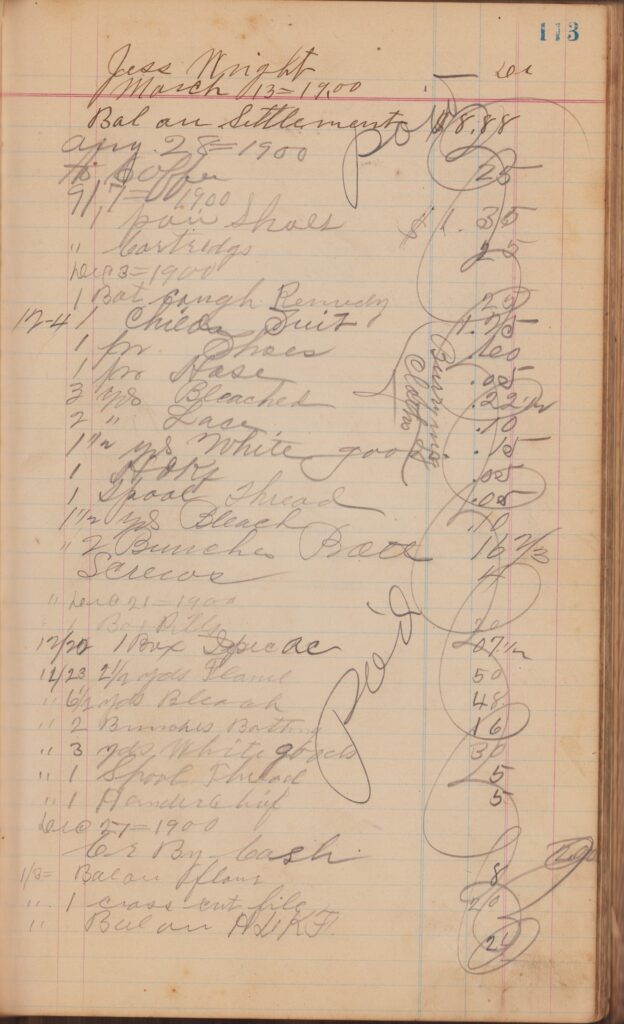 113
Jess Wright Dr
March 13 = 1900
Bal on Settlement $8.88
Aug. 28 = 1900
To Coffee 25
9/17 = 1900
1 pair Shoes $1.35
" Cartredgs 25
Dec 3 = 1900
1 Bot Cough Remedy 25
12-4 1 Childs Suit 1.75
1 pr. Shoes .60
1 pr Hose .05
3 yds Bleached .22 1/2
2 " Lace .10
1 1/2 yds White goods .15
1 Hdkf .05
1 Spool Thread .05
1 1/2 yds Bleach .10
" 2 Bunches Batt 16 2/3
Screws 4
Burrying Clothes
Paid
" Dec 21 = 1900
1 Box Pills 20
12/22 1 Box Ipecac 07 1/2
12/23 2 1/2 yds Flanel 50
" 6 1/2 yds Bleach 48
" 2 Bunches Batting 16
" 3 yds White goods 30
" 1 Spool Thread 5
" 1 Handerchif 5
Paid
Dec 27 = 1900
Cr By Cash
1/3 = Bal on flour 8
" 1 cross cut file 20
" Bal on 25